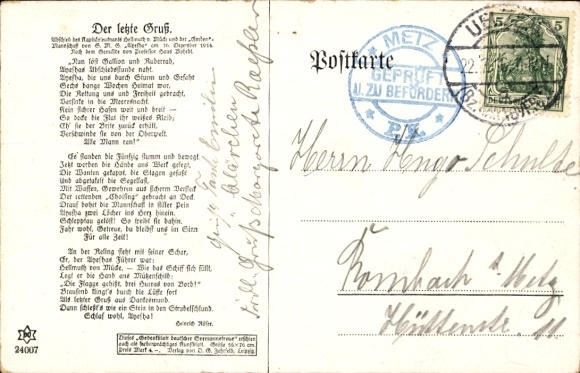 Der letzte Gruß.
Abschied des Kapitänleutnants Hellmuth v. Mücke und der „Emden"-
Mannschaft von S. M. S. „Ayesha" am 16. Dezember 1914.
Nach dem Gemälde von Professor Hans Bohrdt.
„Nun löst Gallion und Ruderrad,
Ayeshas Abschiedsstunde naht.
Ayesha, die uns durch Sturm und Gefahr
Sechs bange Wochen Heimat war,
Die Rettung uns und Freiheit gebracht,
Versinke in die Meeresnacht.
Kein sichrer Hafen weit und breit —
So decke die Flut ihr weißes Kleid;
Eh' sie der Brite zurück erhält,
Verschwinde sie von der Oberwelt.
Alle Mann ran!"
Es standen die Fünfzig stumm und bewegt,
Jetzt werden die Hände ans Werk gelegt,
Die Wanten gekappt, die Stagen gefaßt
Und abgetakelt die Segellast.
Mit Waffen, Gewehren aus sicherem Versteck
Der rettenden „Choising" gebracht an Deck.
Drauf bohrt die Mannschaft in stiller Pein
Ayesha zwei Löcher ins Herz hinein.
Schlepptau gelöst! So treibt sie dahin.
Fahr wohl, Getreue, du bleibst uns im Sinn
Für alle Zeit!
An der Reling steht mit seiner Schar,
Er, der Ayeshas Führer war:
Hellmuth von Mücke. — Wie das Schiff sich füllt,
Legt er die Hand ans Mützenschild:
„Die Flagge gehißt, drei Hurras von Bord!"
Brausend klingt's durch die Lüfte fort
Als letzter Gruß aus Dankesmund.
Dann schießt's wie ein Stein in den Strudelschlund.
Schlaf wohl, Ayesha!
Heinrich Röser.
24007
Dieses „Gedenkblatt deutscher Seemannstreue" erschien
auch als farbenprächtiges Kunstblatt. Größe 56×76 cm.
Preis Mark 4.—. Verlag von O. G. Zehrfeld, Leipzig.
Familien
Klärchen
Gruß Margarete
Postkarte
METZ
GEPRÜFT
U. ZU BEFÖRDERN
P.K.
5 5
Herrn Hugo Schulze
Rombach b. Metz
Hüttenstr. 11